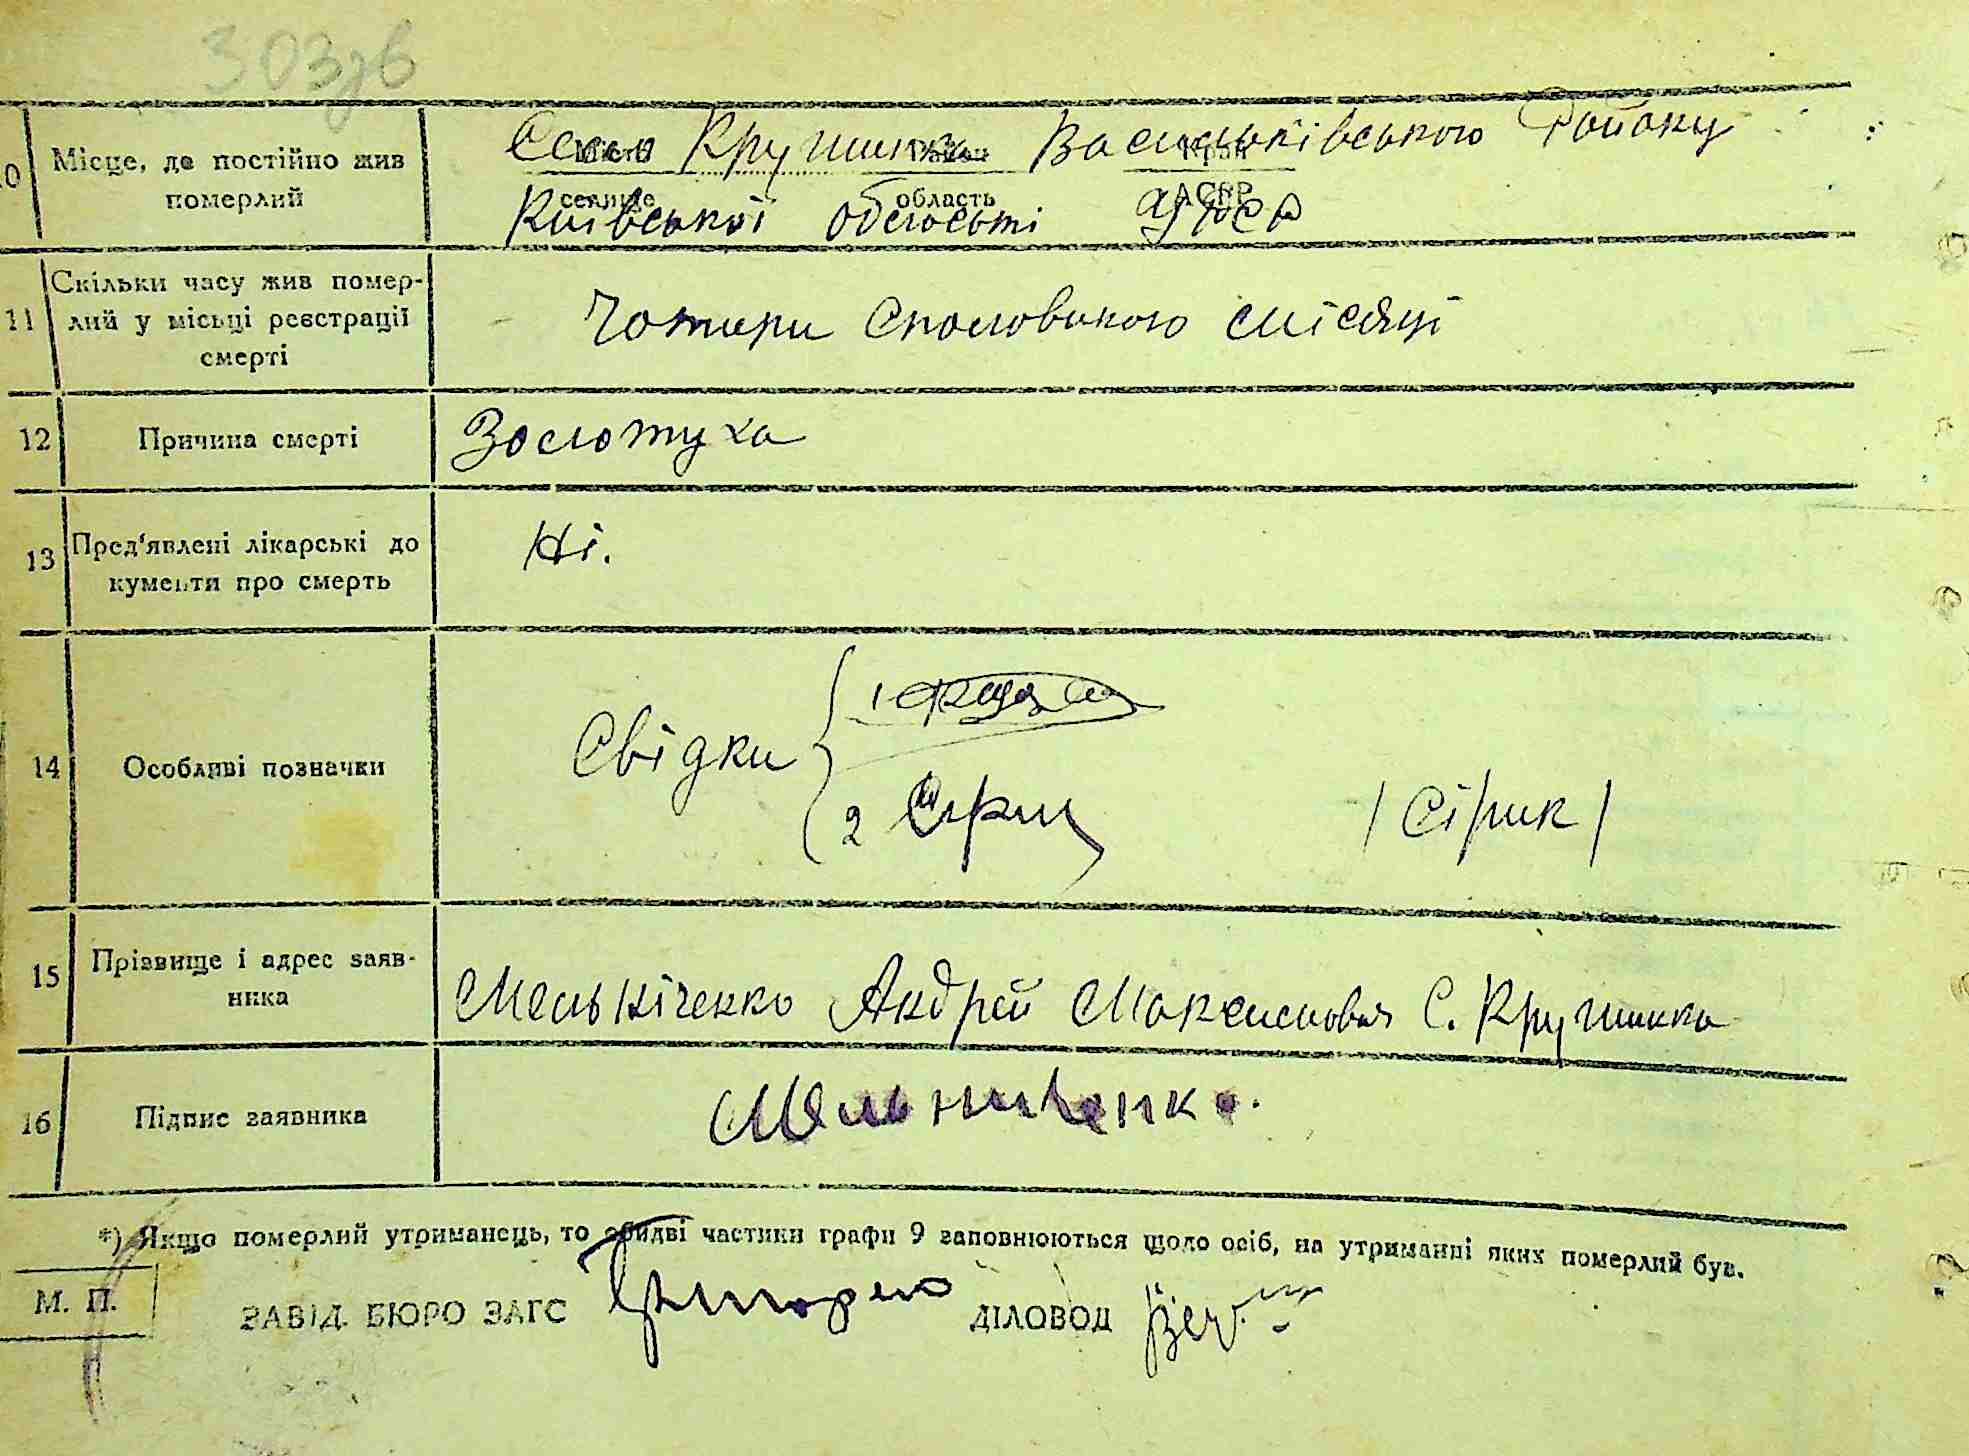 303зв
10 Місце, де постійно жив померлий
Село Крушинка Васильківського Району
місто район край
селище область АСРР
Київської області УРСР
11 Скільки часу жив помер-
лий у місці реєстрації
смерті
Чотири споловиною місяці
12 Причина смерті
Золотуха
13 Пред'явлені лікарські до
кументи про смерть
Ні.
14 Особливі позначки
Свідки
1
2 Сірик /Сірик/
15 Прізвище і адрес заяв-
ника
Мельніченко Андрей Максимович С. Крушинка
16 Підпис заявника
Мельниченко.
*) Якщо померлий утриманець, то обидві частини графи 9 заповнюються щодо осіб, на утриманні яких померлий був.
М. П.
ЗАВІД. БЮРО ЗАГС ДІЛОВОД